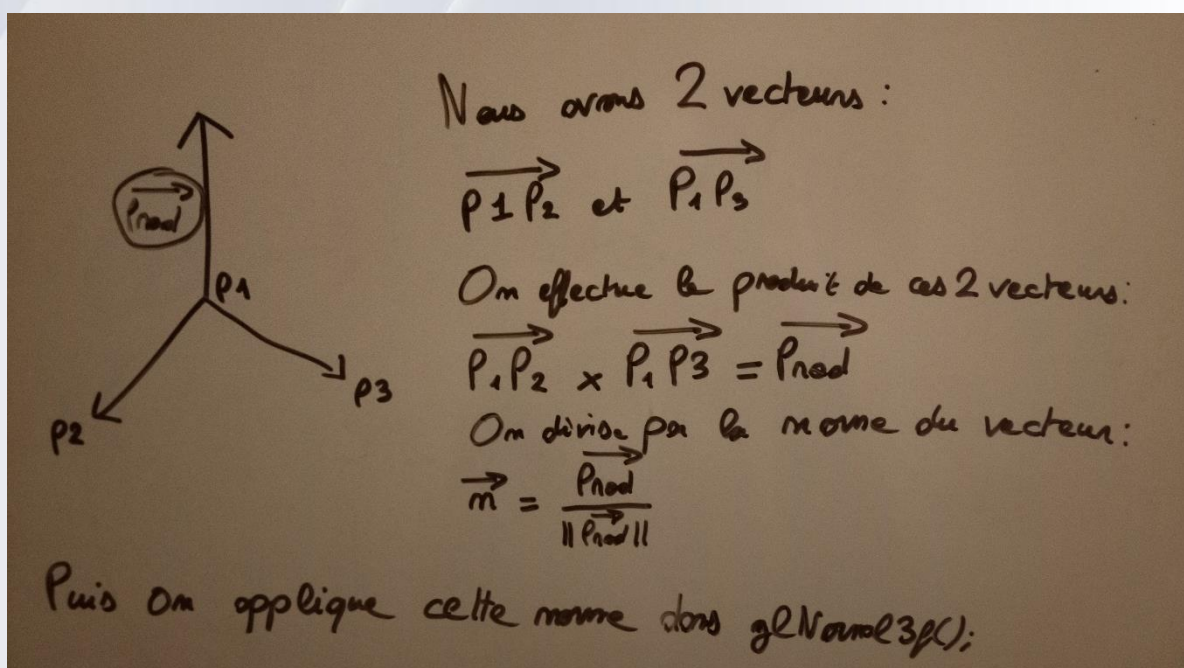 Nous avons 2 vecteurs :
P1P2 et P1P3
On effectue le produit de ces 2 vecteurs:
P1P2 x P1P3 = Prod
On divise par la norme du vecteur:
n = Prod / ||Prod||
Puis on applique cette norme dans glNormal3f();
Prod
P1
P2
P3